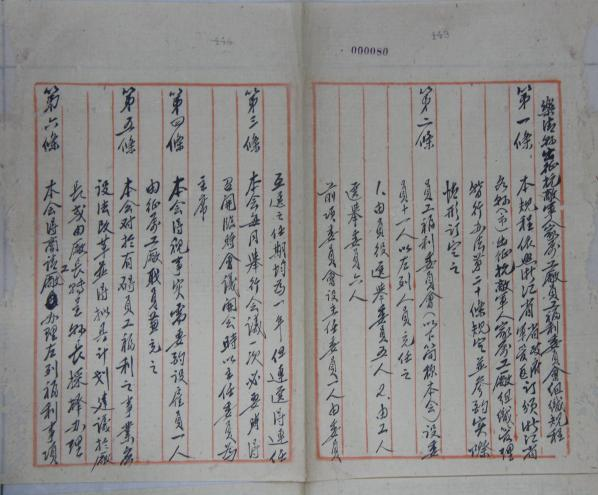 000080
樂清縣出征抗敵軍人家屬工廠員工福利委員會組織規程
第一條 本規程依照浙江省政府
訂頒浙江省
各縣(市)出征抗敵軍人家屬工廠組織管理
暫行辦法第二十條規定並參酌實際
情形訂定之
第二條 員工福利委員會(以下簡稱本會)設委
員十一人以左列人員充任之
1.由員役選舉委員五人 2.由工人
選舉委員六人
前項委員會設主任委員一人由委員
互選之任期均為一年但連選得連任
第三條 本會每月舉行會議一次必要時得
召開臨時會議開會時以主任委員為
主席
第四條 本會得視事實需要酌設雇員一人
由征屬工廠職員兼充之
第五條 本會對於有礙員工福利之事業應
設法改革並得擬具計劃建議於廠
長或由廠長轉呈縣長採擇辦理
第六條 本會得商請工廠辦理左列福利事項